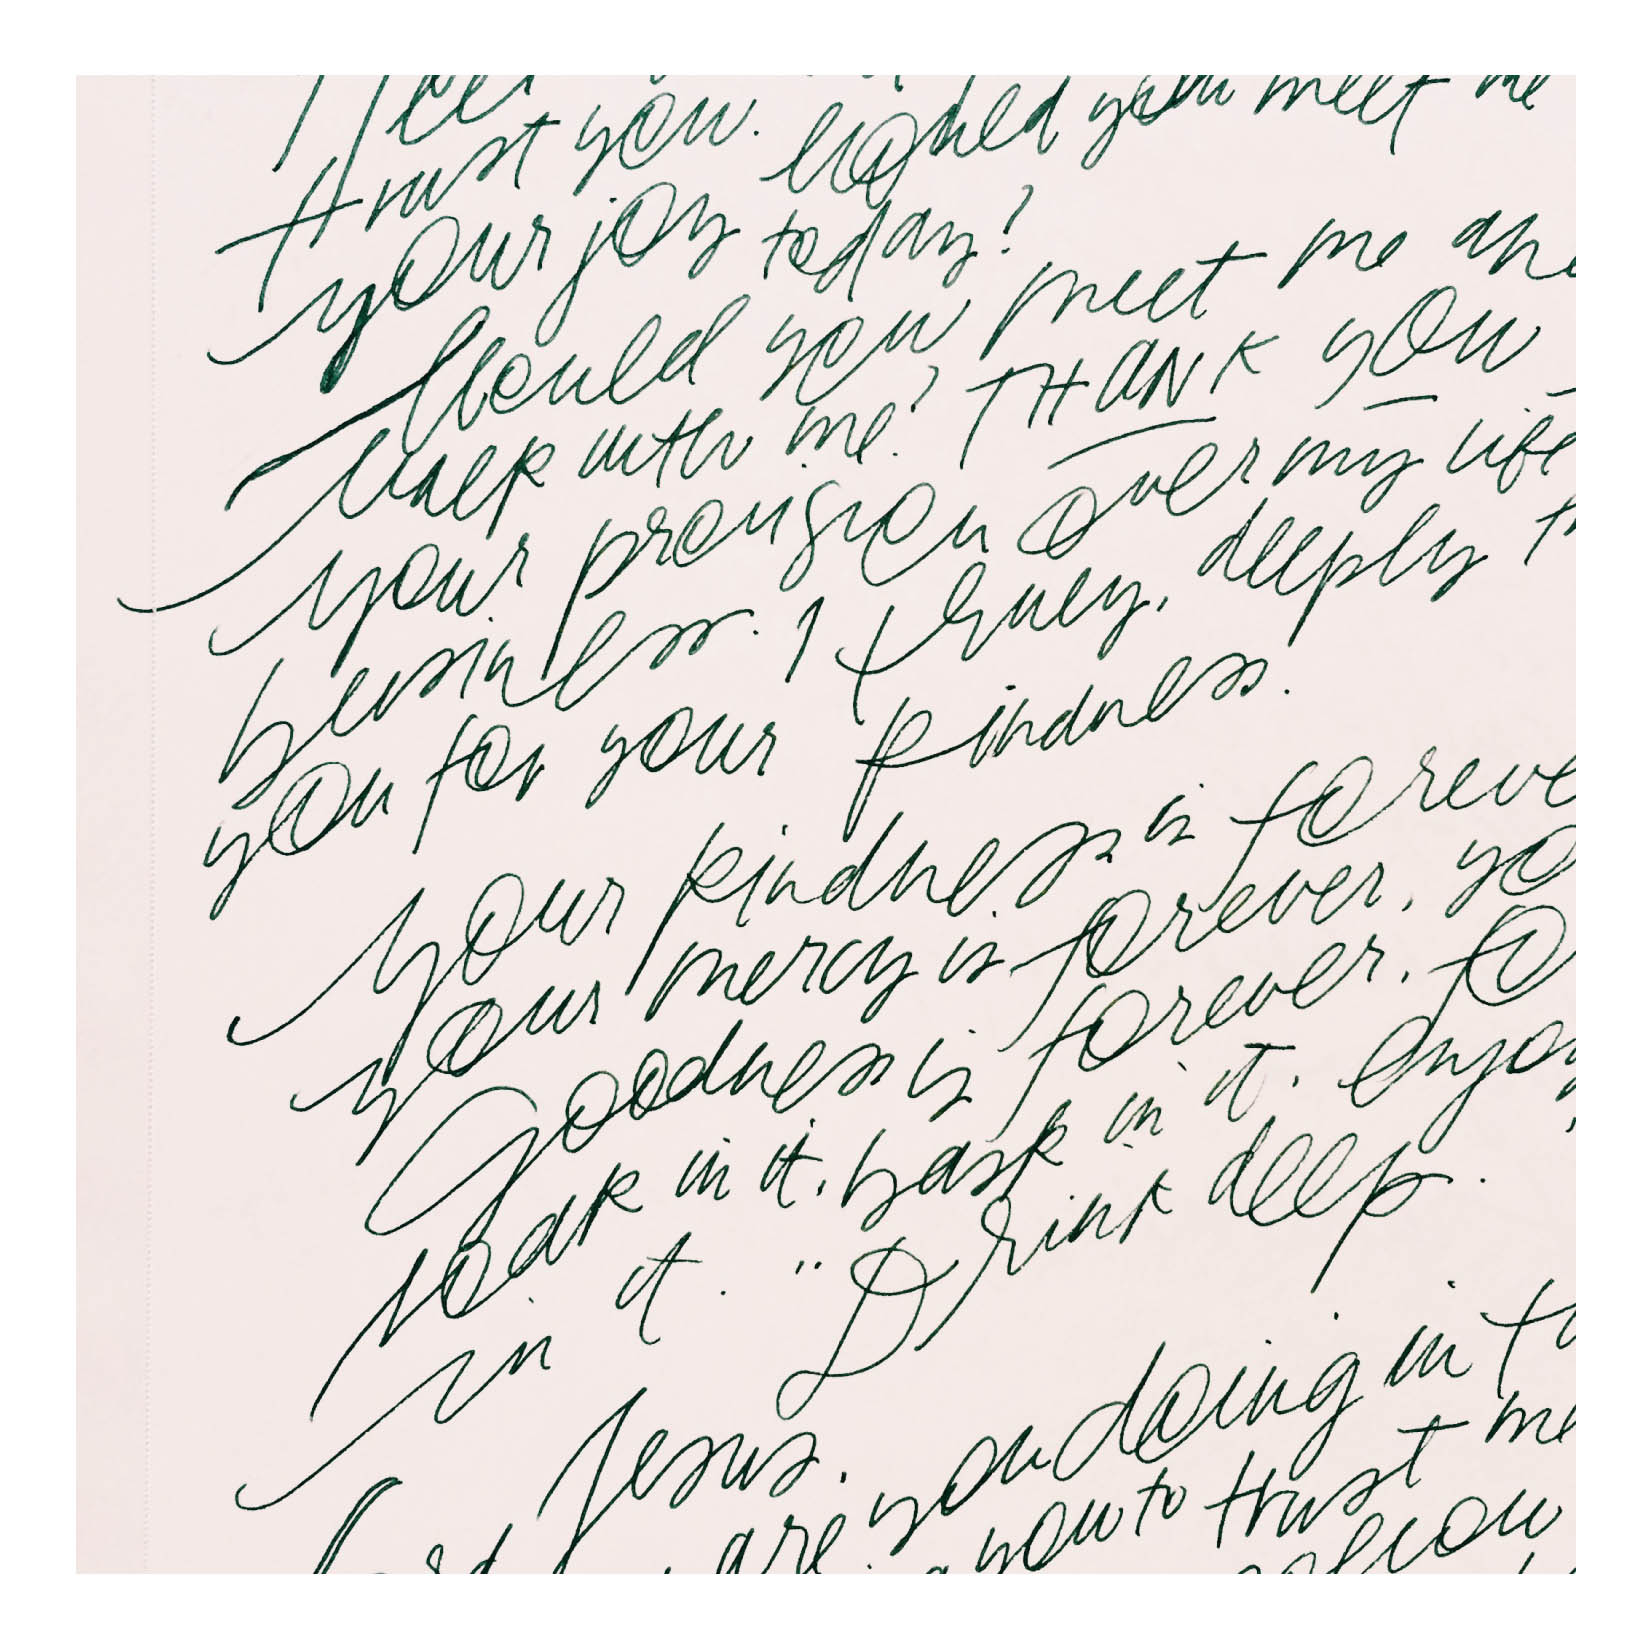 trust you. Would you meet me
your joy today?
Would you meet me an
walk with me? THANK you
your provision over my life
business. I truly, deeply th
you for your kindness.
your kindness is foreve
your mercy is forever, yo
Goodness is forever. to
soak in it, bask in it. Enjoy
in it. "Drink deep.
Jesus.
are you doing in th
you to trust me